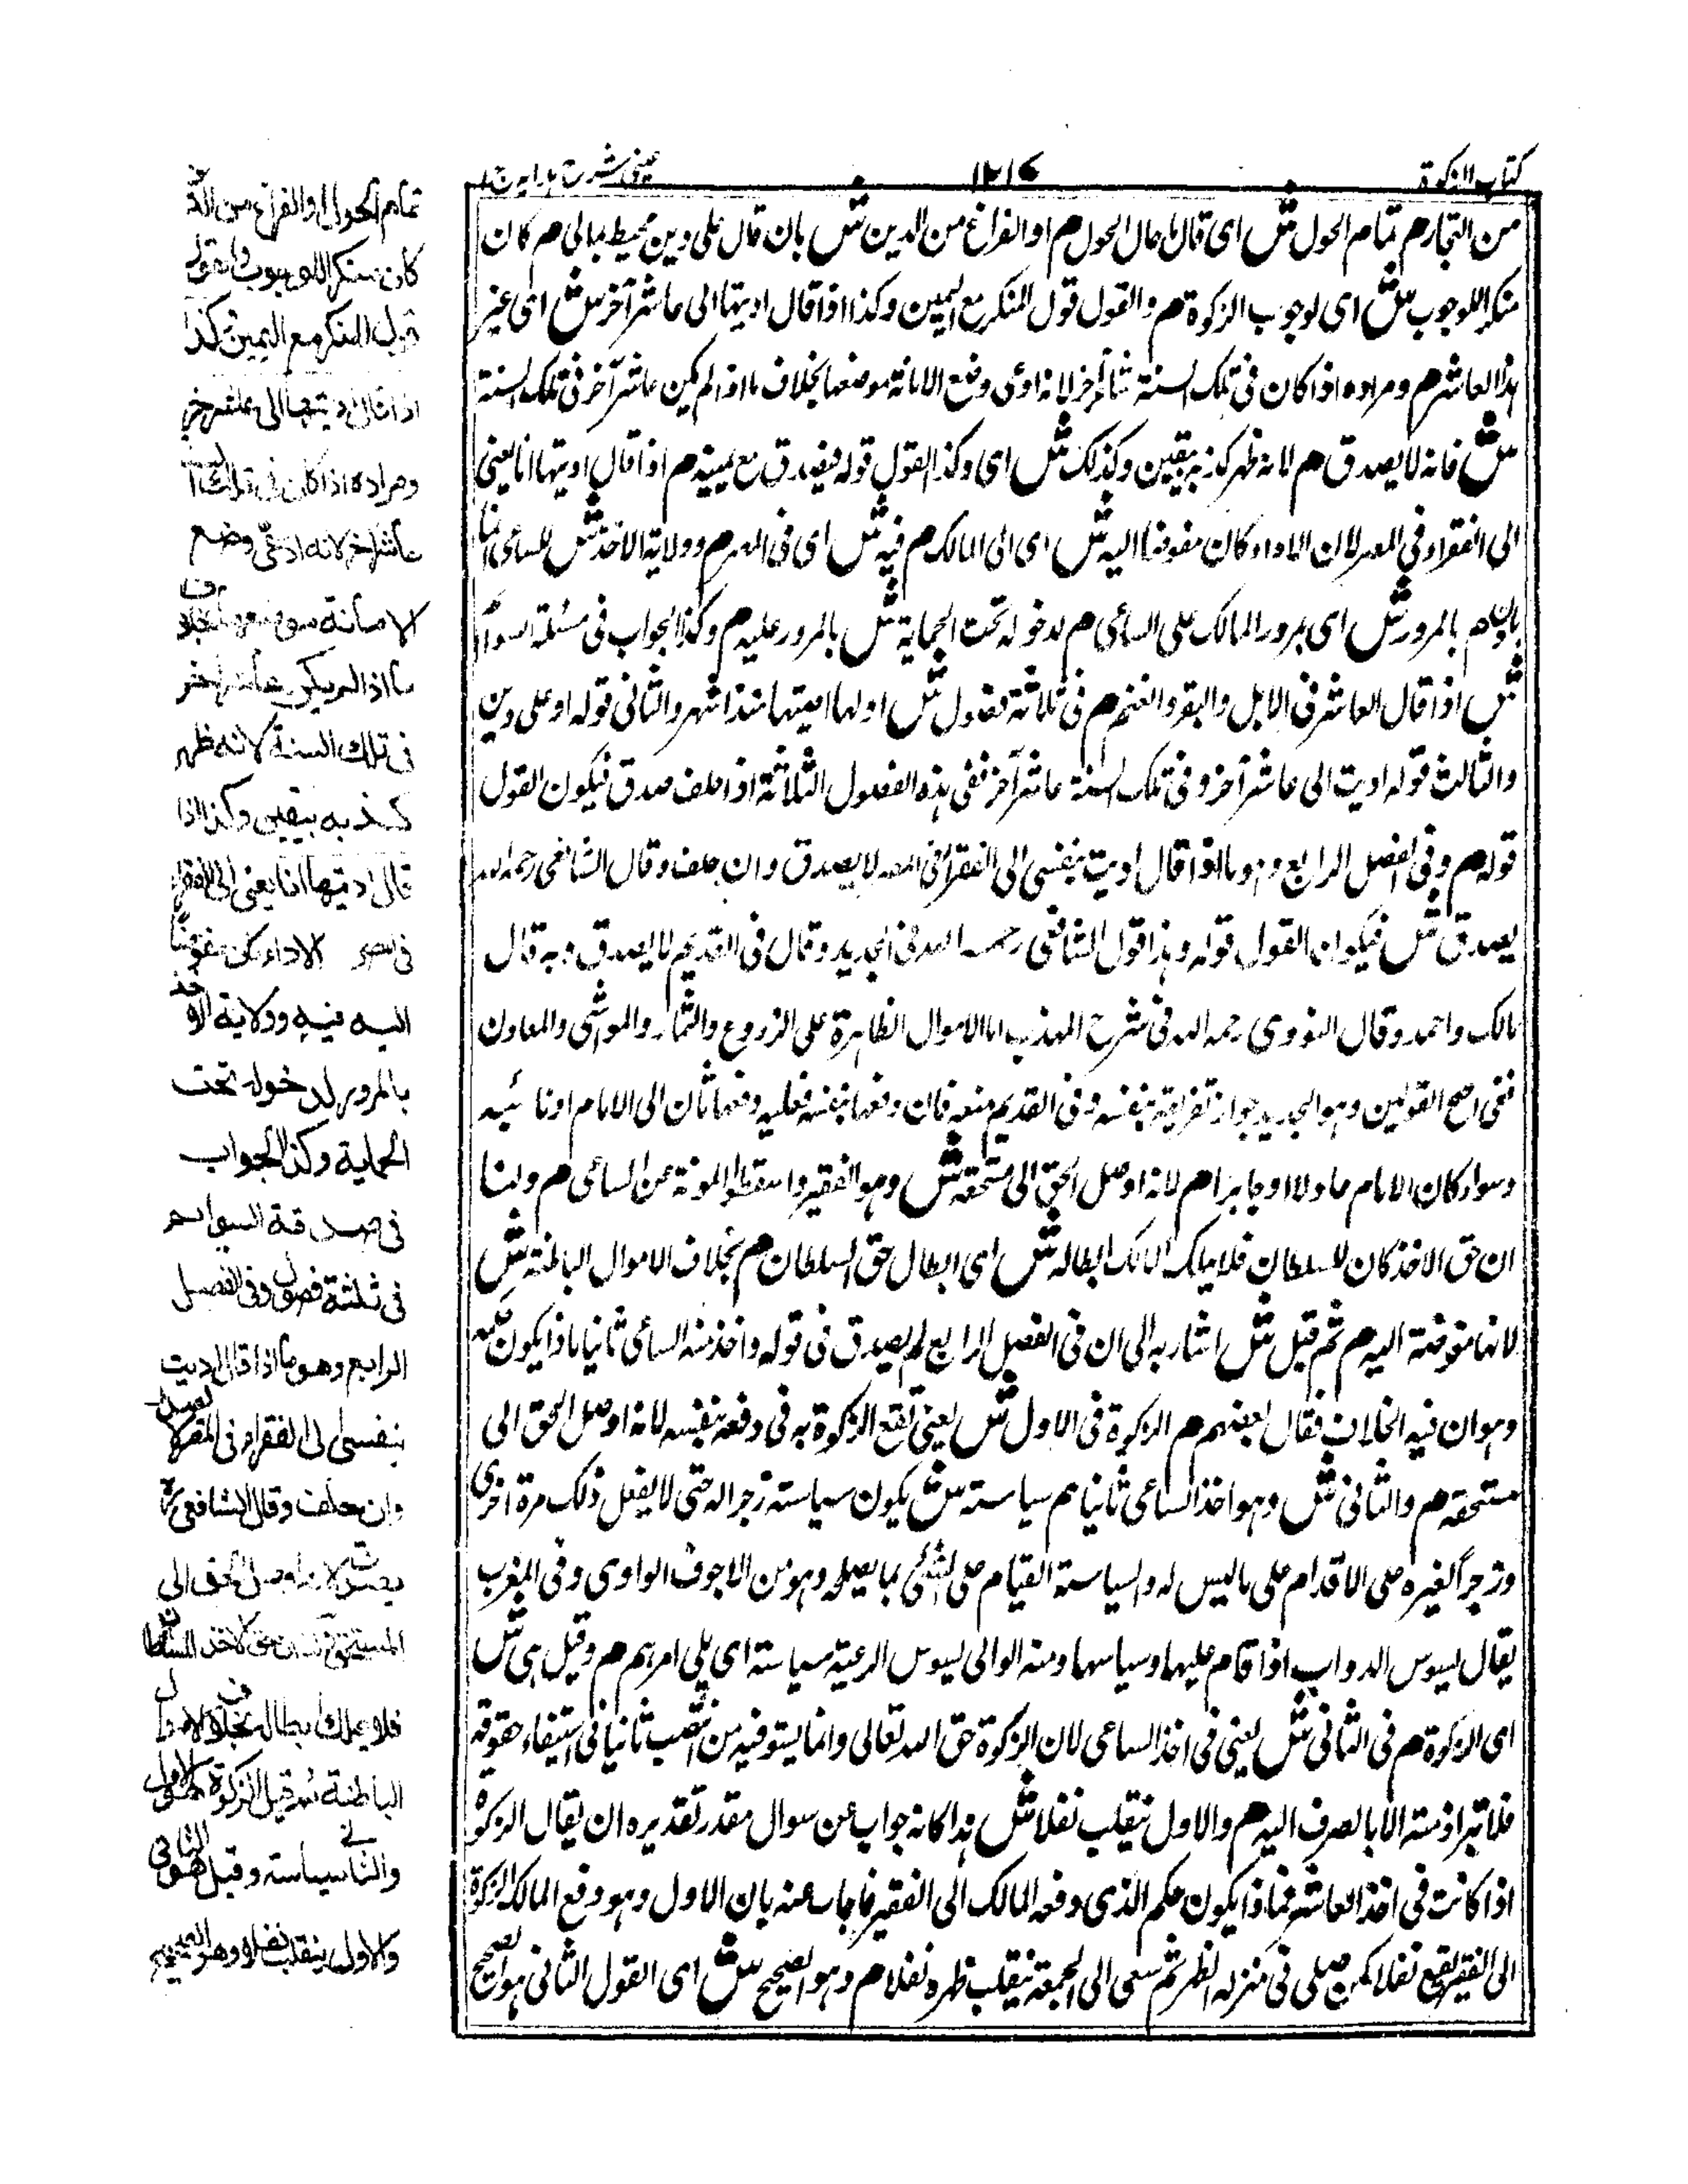 كتاب الزكوة
١٢١٤
عينى شرح هدايه ج١
من التجار م تمام الحول ش اى قال ما حال الحول م او الفراغ من الدين ش بان قال على دين محيط بمالى م كان
منكرا للوجوب ش اى لوجوب الزكوة م والقول قول المنكر مع اليمين وكذا اذا قال اديتها الى عاشر آخر ش اى غير
هذا العاشر م ومراده اذا كان فى تلك السنة عاشر آخر لانه ادعى وضع الامانة موضعها بخلاف ما اذا لم يكن عاشر آخر فى تلك السنة
ش فانه لا يصدق م لانه ظهر كذبه بيقين وكذلك ش اى وكذا القول قوله فيصدق مع يمينه م اذا قال اديتها انا يعنى
الى الفقراء فى المصر لان الاداء كان مفوضا اليه ش اى الى المالك م فيه ش اى فى المصر م وولاية الاخذ ش للساعى انما
بالمرور ش اى بمرور المالك على الساعى م لدخوله تحت الحماية ش بالمرور عليه م وكذا الجواب فى مسئلة السوائم
ش اذا قال العاشر فى الابل والبقر والغنم م فى ثلاثة فصول ش اولها اصبتها منذ اشهر والثانى قوله او على دين
والثالث قوله اديت الى عاشر آخر وفى تلك السنة عاشر آخر ففى هذه الفصول الثلاثة اذا حلف صدق فيكون القول
قوله م وفى الفصل الرابع وهو ما اذا قال اديت بنفسى الى الفقراء فى المصر لا يصدق وان حلف وقال الشافعى رحمه الله
يصدق ش فيكون القول قوله وهذا قول الشافعى رحمه الله فى الجديد وقال فى القديم لا يصدق وبه قال
مالك واحمد وقال النووى رحمه الله فى شرح المهذب اما الاموال الظاهرة على الزروع والثمار والمواشى والمعادن
ففى اصح القولين وهو الجديد جواز تفريقه بنفسه وفى القديم منعه فان دفعها بنفسه فعليه دفعها ثان الى الامام او نائبه
وسواء كان الامام عادلا او جابرا م لانه اوصل الحق الى مستحقه ش وهو الفقير واسقط المونة عن الساعى م ولنا
ان حق الاخذ كان للسلطان فلا يملك المالك ابطاله ش اى ابطال حق السلطان م بخلاف الاموال الباطنة ش
لانها مفوضة اليه م ثم قيل ش اشار به الى ان فى الفصل الرابع لم يصدق فى قوله واخذ منه الساعى ثانيا ماذا يكون حكمه
وهو ان فيه الخلاف فقال بعضهم م الزكوة فى الاول ش يعنى تقع الزكوة به فى دفعه بنفسه لانه اوصل الحق الى
مستحقه م والثانى ش وهو اخذ الساعى ثانيا م سياسة ش يكون سياسته زجرا له حتى لا يفعل ذلك مرة اخرى
وزجرا لغيره على الاقدام على ماليس له والسياسة القيام على الشئ بما يصلحه وهو من الاجوف الواوى وفى المغرب
يقال يسوس الدواب اذا قام عليها وسياسها ومنه الوالى يسوس الرعية سياسة اى يلى امرهم م وقيل هى ش
اى الزكوة م فى الثانى ش يعنى فى اخذ الساعى لان الزكوة حق الله تعالى وانما يستوفيه من نصب ثانيا فى استيفاء حقوقه
فلا تبرأ ذمته الا بالصرف اليه م والاول ينقلب نفلا ش هذا كانه جواب عن سوال مقدر تقديره ان يقال الزكوة
اذا كانت فى اخذ العاشر فماذا يكون حكم الذى دفعه المالك الى الفقير فاجاب عنه بان الاول وهو دفع المالك الزكوة
الى الفقير يقع نفلا كمن صلى فى منزله الظهر ثم سعى الى الجمعة ينقلب ظهره نفلا م وهو الصحيح ش اى القول الثانى هو الصحيح
تمام الحول او الفراغ من الدين
كان منكرا للوجوب والقول
قول المنكر مع اليمين وكذا
اذا قال اديتها الى عاشر آخر
ومراده اذا كان فى تلك السنة
عاشر آخر لانه ادعى وضع
الامانة موضعها بخلاف
ما اذا لم يكن عاشر آخر
فى تلك السنة لانه ظهر
كذبه بيقين وكذا اذا
قال اديتها انا يعنى الى الفقراء
فى المصر الاداء كان مفوضا
اليه فيه وولاية الاخذ
بالمرور لدخوله تحت
الحماية وكذا الجواب
فى صدقة السوايم
فى ثلثة فصول وفى الفصل
الرابع وهو ما اذا قال اديت
بنفسى الى الفقراء فى المصر لا يصدق
وان حلف وقال الشافعى رح
يصدق لانه اوصل الحق الى
المستحق ولنا ان حق الاخذ للسلطان
فلا يملك ابطاله بخلاف الاموال
الباطنة ثم قيل الزكوة هو الاول
والثانى سياسة وقيل هو الثانى
والاول ينقلب نفلا وهو الصحيح